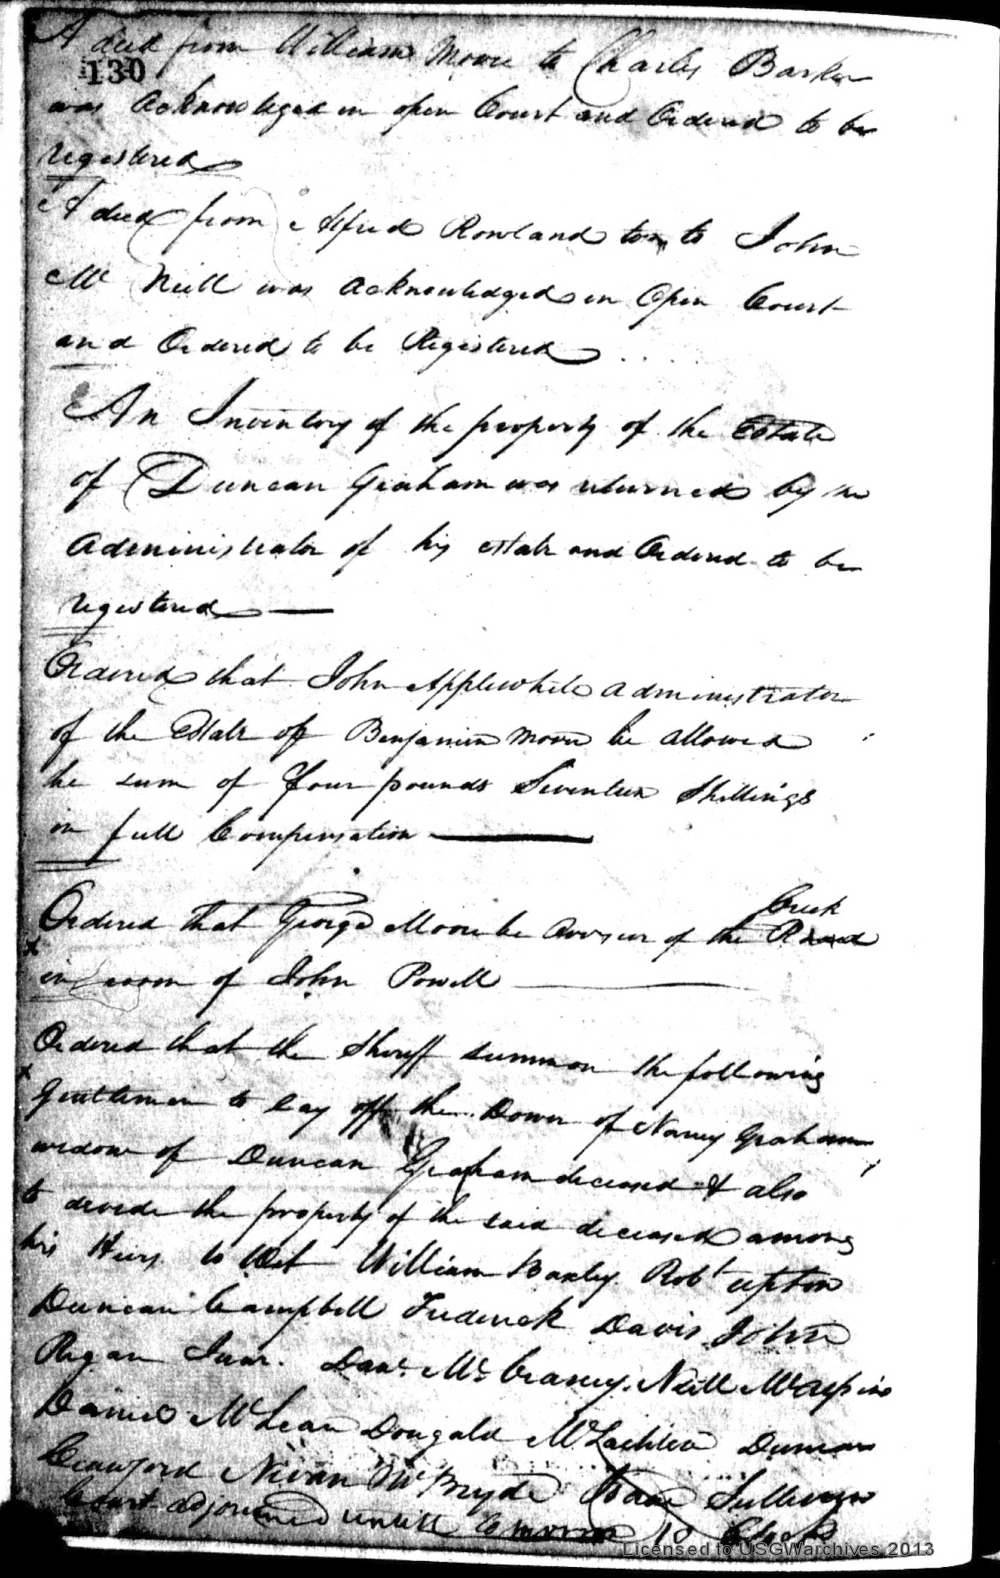 A deed from William Moore to Charles Barker
130
was Acknowleged in open Court and Ordered to be
registered
A deed from Alfred Rowland to John
Mc Neill was acknowledged in Open Court
and Ordered to be Registered
An Inventory of the property of the Estate
of Duncan Graham was returned by the
administrator of his estate and Ordered to be
registered
Ordered that John Applewhite administrator
of the Estate of Benjamin Moore be allowed
the sum of four pounds Seventeen Shillings
in full Compensation
Creek
Ordered that George Moore be Overseer of the Road
in room of John Powell
Ordered that the Sheriff summon the following
Gentlemen to lay off the Dower of Nancy Graham
widow of Duncan Graham deceased & also
to devide the property of the said deceased among
his Heirs to Wit William Baxley Robt upton
Duncan Campbell Frederick Davis John
Regan Junr. Danl. Mc Craney. Neill McAlpin
Daniel McLean Dougald McLachlin Duncan
Crawford Niven McBryde Isaac Sullivan
Court adjourned untill Tomorrow 10 Clock
Licensed to USGWarchives 2013